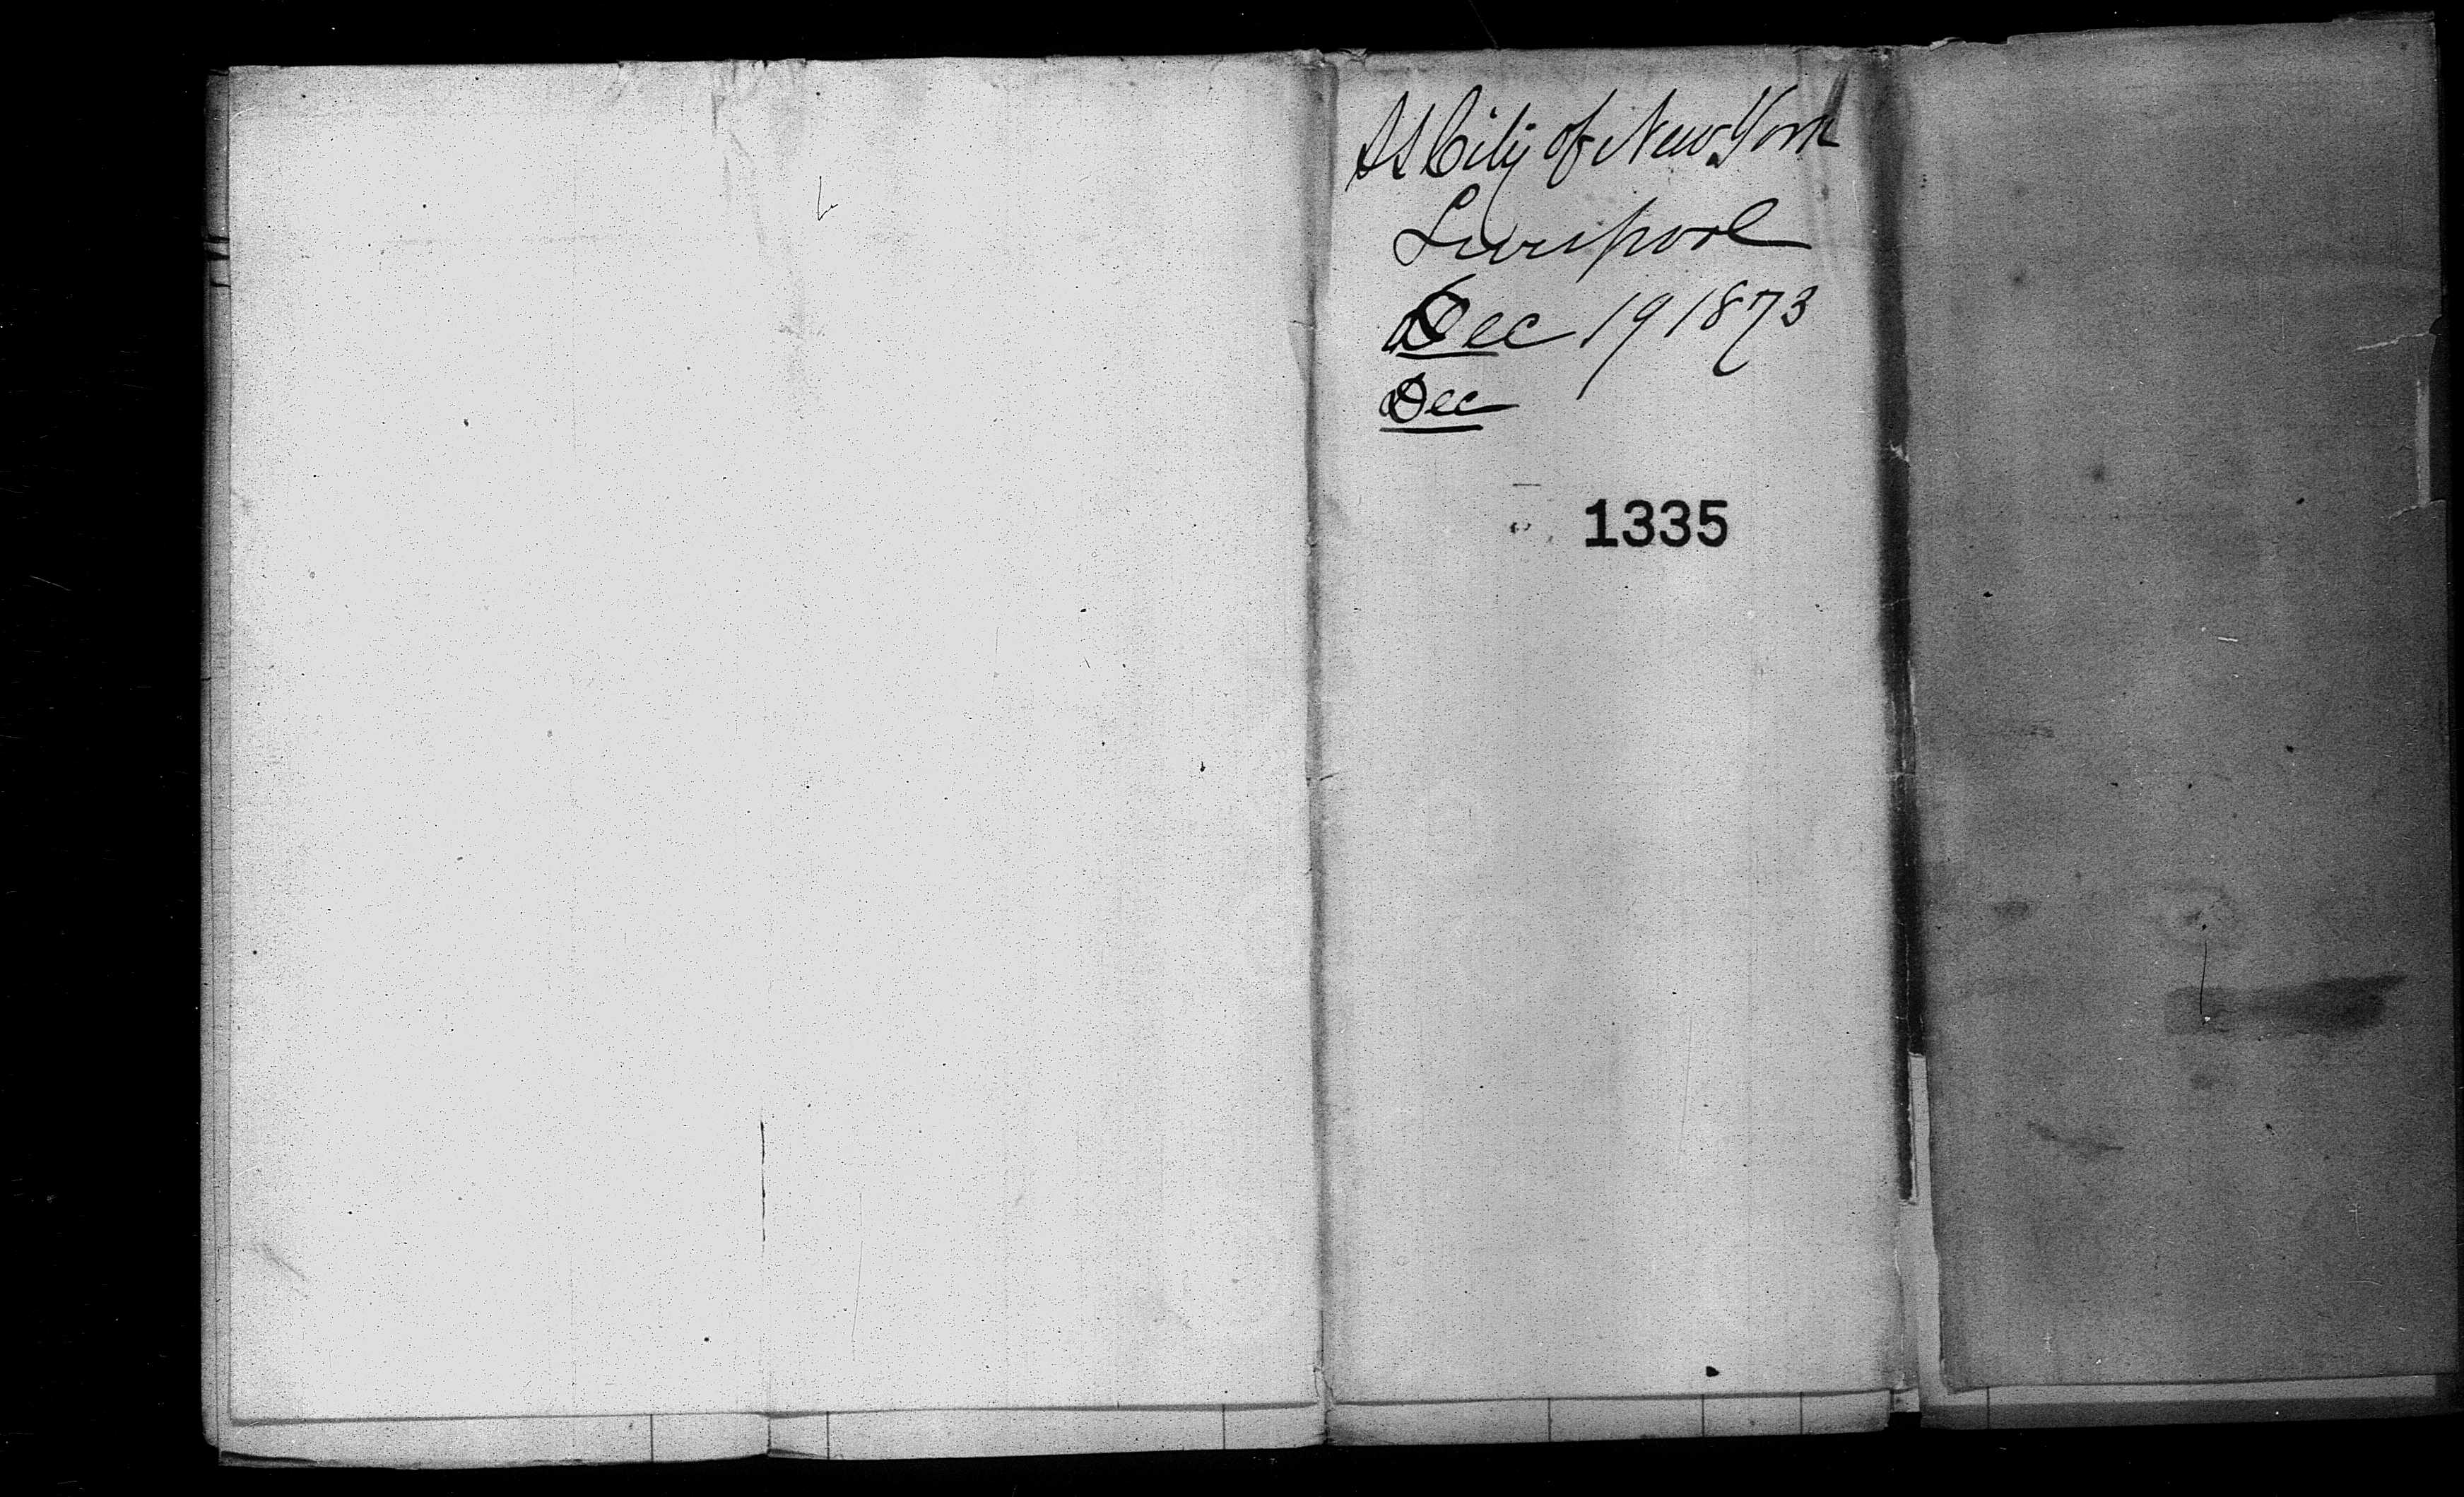 SS City of New York
Liverpool
Dec 19 1873
Dec
1335